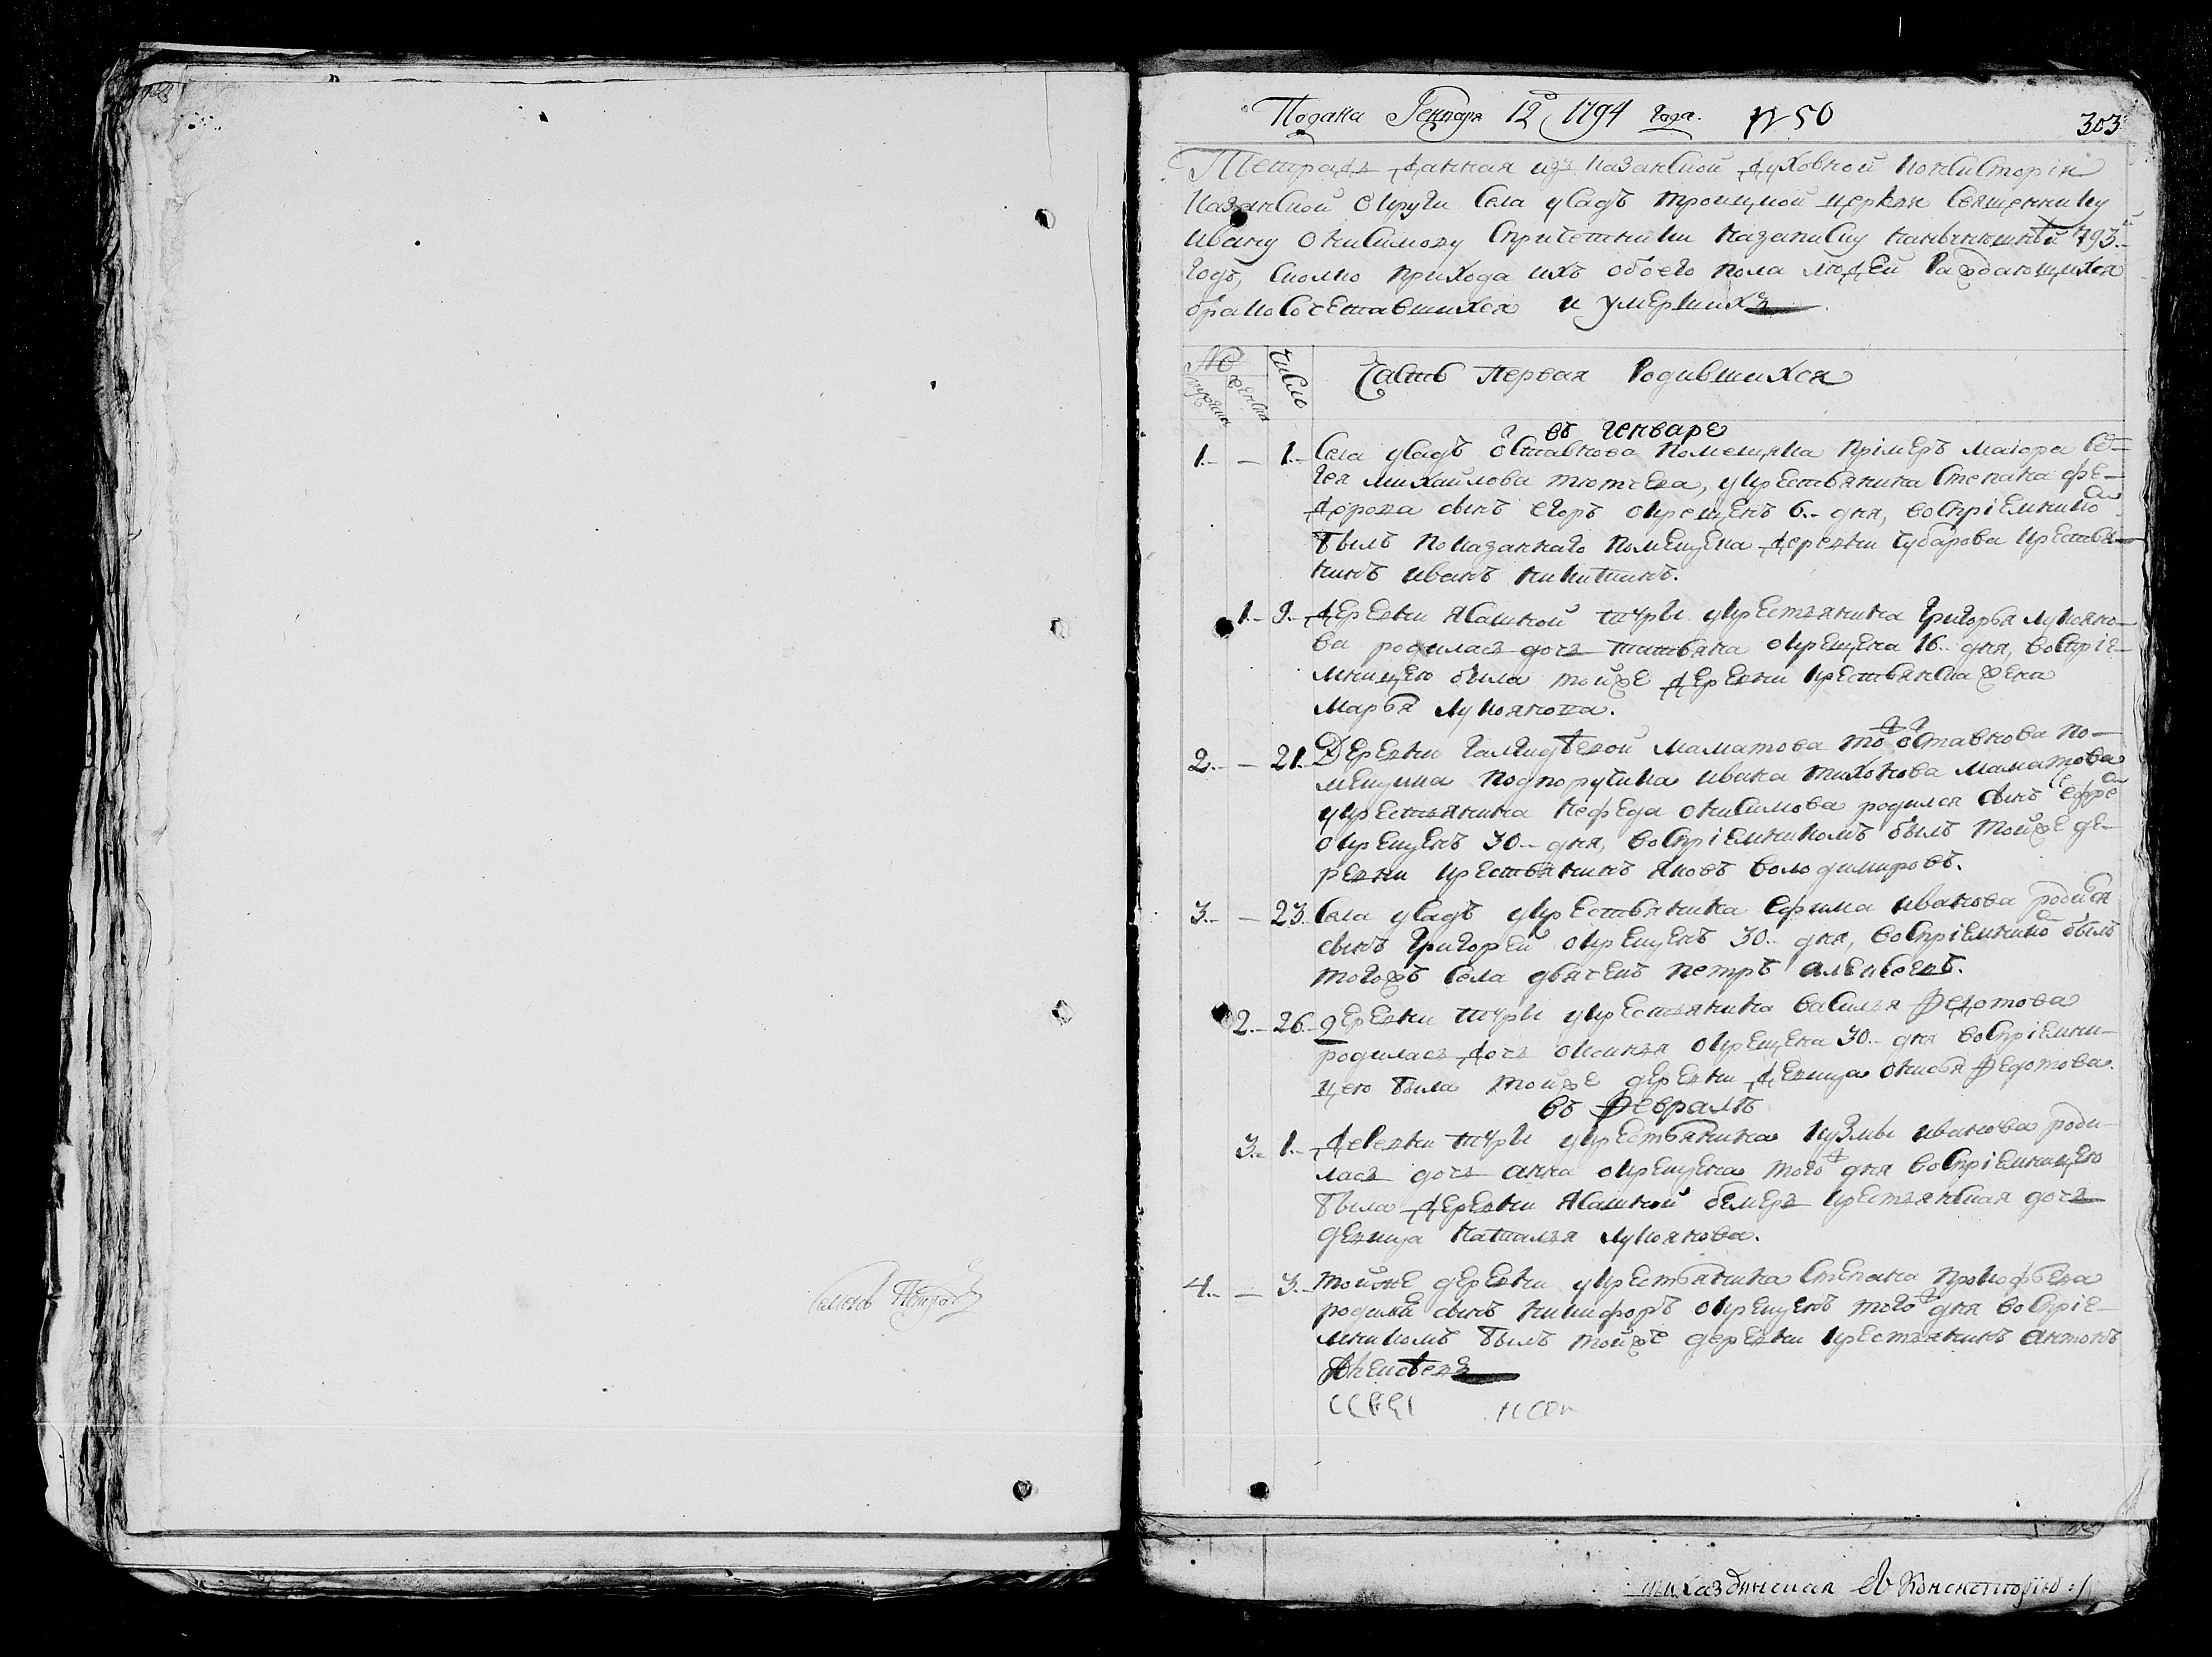 Подана Генваря 12 1794 года. № 50
303
Тетрадь данная изъ казанской духовной консисторіи
казанской округи села усадъ троицкой церкви священнику
ивану онисимову спричетники на записку нанынешный 793й
годъ, сколко прихода ихъ обоего пола людей раждающихся
бракосочетавшихся и умершихъ
№ число
мужеска женска
Часть первая родившихся
въ генваре
1. — 1. Села усадъ отставнова помещика примеръ маіора Се-
гея михаилова тютчева, укрестьянина степана фе-
дорова сынъ егоръ окрещенъ 6. дня, воспріемнико
былъ показаннаго помещика деревни чубарова крестья-
нинъ иванъ никитинъ.
1. 9. Деревни ясашной тчры укрестьянина григорья лукояно-
ва родилась дочь татьяна окрещена 16. дня, воспріе-
мницею была тойже деревни крестьянска жена
марья лукоянова.
2. — 21. Деревни маматова то отставнова по-
мещика подпоручика ивана тихонова маматова
укрестьянина нефеда онисимова родился сынъ ефре
окрещенъ 30. дня, воспріемникомъ былъ тойже де-
ревни крестьянинъ яковъ володимировъ.
3. — 23 Села усадъ укрестьянина ефима иванова родися
сынъ григорей окрещенъ 30. дня, воспріемнико былъ
тогожъ села дьячекъ петръ алексеевъ.
2. 26. деревни тчры укрестьянина василья федотова
родилась дочь оксинья окрещена 30. дня воспріемни-
цею была тойже деревни девица федотова.
въ февралѣ
3. 1. Деревни тчры укрестьянина кузмы иванова роди-
лась дочь анна окрещена того дня воспріемницею
была деревни ясашной бемеръ крестьянская дочь
девица наталья лукоянова.
4. — 3. тойже деревни укрестьянина степана прокофьева
родился сынъ никифоръ окрещенъ того дня воспріе-
мникомъ былъ тойже деревни крестьянинъ антонъ
Петро
въ Консисторію